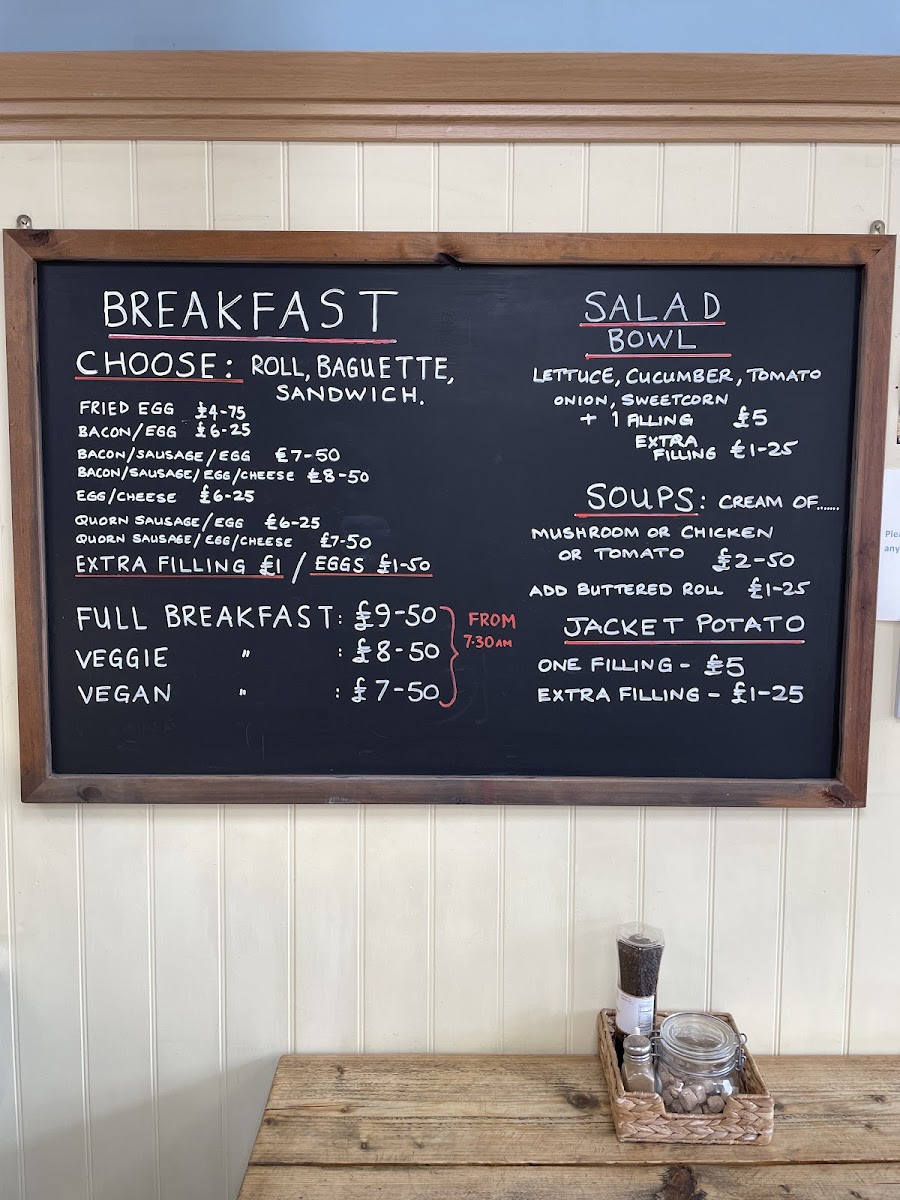 BREAKFAST
CHOOSE: ROLL, BAGUETTE,
SANDWICH.
FRIED EGG £4-75
BACON/EGG £6-25
BACON/SAUSAGE/EGG £7-50
BACON/SAUSAGE/EGG/CHEESE £8-50
EGG/CHEESE £6-25
QUORN SAUSAGE/EGG £6-25
QUORN SAUSAGE/EGG/CHEESE £7-50
EXTRA FILLING £1 / EGGS £1-50
FULL BREAKFAST: £9-50
VEGGIE " : £8-50
VEGAN " : £7-50
FROM
7.30AM
SALAD
BOWL
LETTUCE, CUCUMBER, TOMATO
ONION, SWEETCORN
+ 1 FILLING £5
EXTRA
FILLING £1-25
SOUPS: CREAM OF......
MUSHROOM OR CHICKEN
OR TOMATO £2-50
ADD BUTTERED ROLL £1-25
JACKET POTATO
ONE FILLING - £5
EXTRA FILLING - £1-25
Plea
any